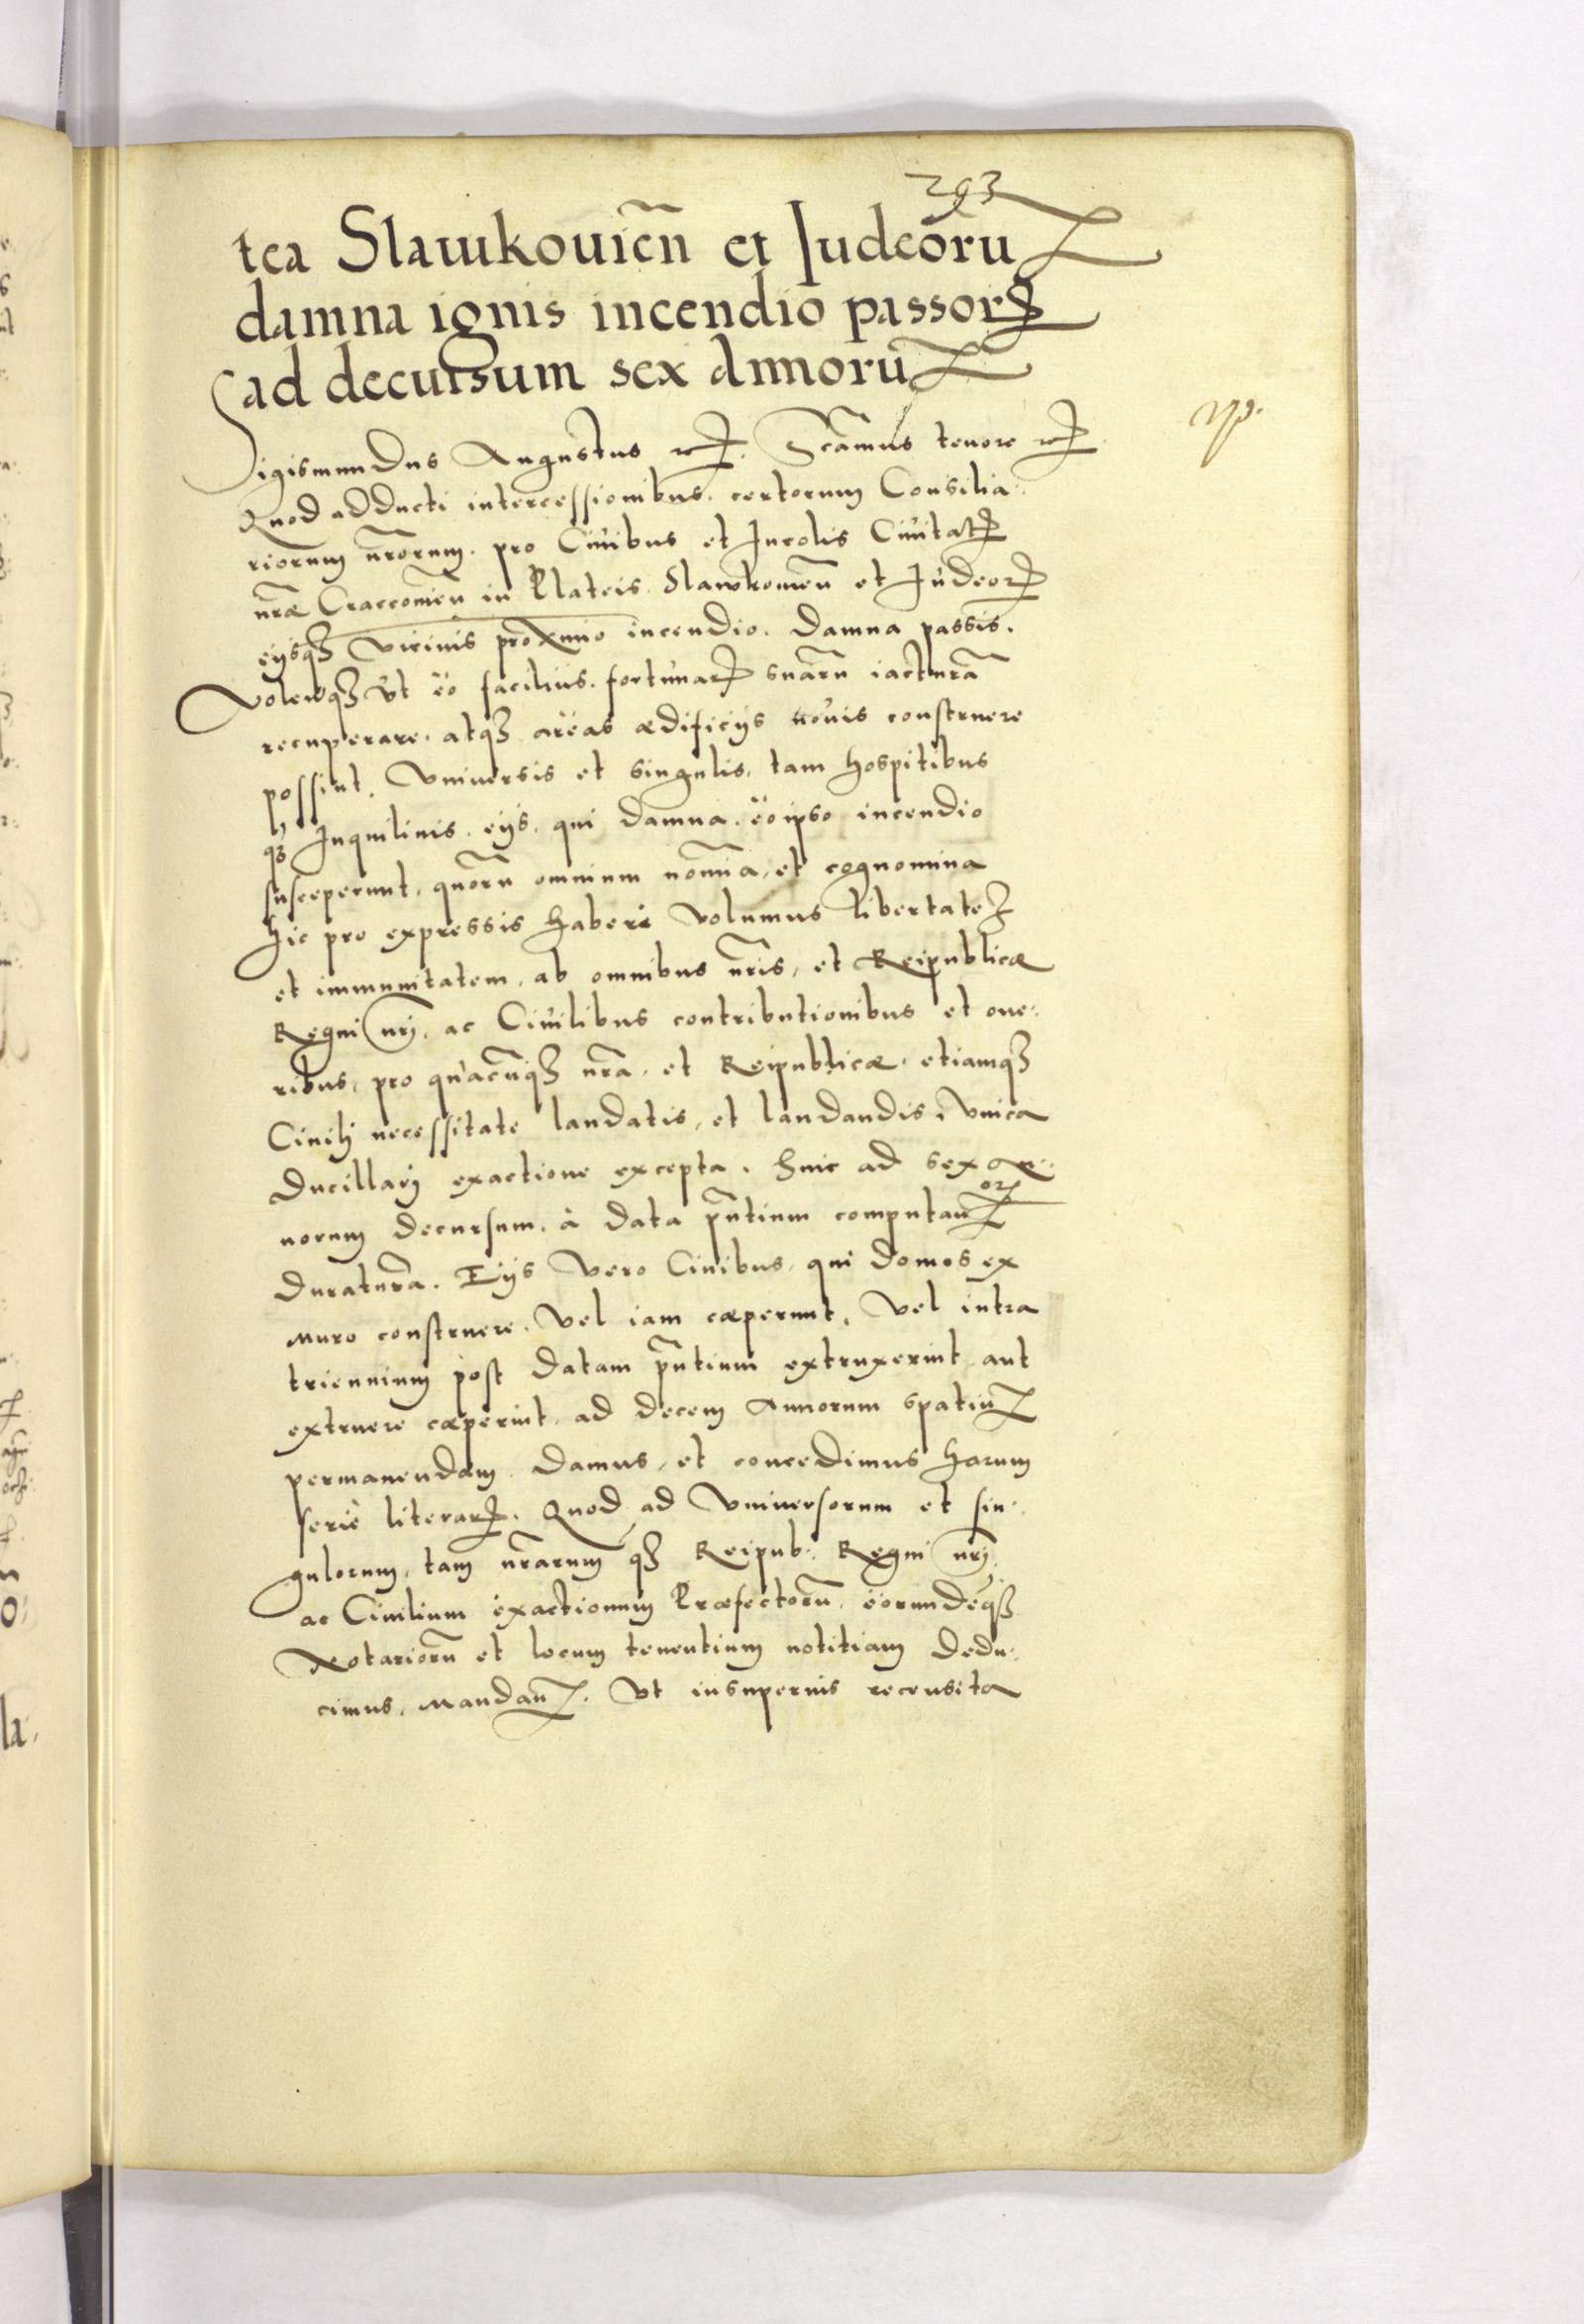 293
tea Slawkouiēn et Iudeoru̅
damna ignis incendio passorꝝ
ad decursum sex annoru̅
Sigismundus Augustus etc. Sca̅mus tenore etc.
Quod adducti intercessionibus. certorum Consilia:
riorum nr̅orum. pro Ciuibus et Incolis Ciuitatꝭ
nr̅æ Craccouien̅ in Plateis Slawkouien̅ et Iudeorꝝ
eijsqꝫ vicinis proximo incendio. damna passis.
Volen̅qꝫ vt eo facilius. fortunarꝝ suaru̅ iactura̅
recuperare. atqꝫ areas ædificijs nouis construere
possint. Vniuersis et singulis, tam hospitibus
qꝫ Inquilinis. eijs. qui damna. eo ipso incendio
susceperunt, quoru̅ omnium nomi̅a, et cognomina
hic pro expressis haberi volumus libertatem
et immunitatem, ab omnibus nr̅is, et Reipublicæ
Regni nr̅j, ac Ciuilibus contributionibus et one:
ribus, pro quacu̅qꝫ nr̅a, et Reipublicæ. etiamqꝫ
Ciuilj necessitate laudatis, et laudandis. vnica
ducillarj exactione excepta. hinc ad sex An:
norum decursum. à data pn̅tium computan̅
orꝫ
duratura̅. Eijs vero Ciuibus, qui domos ex
muro construere. vel iam cæperunt, vel intra
triennium post datam pn̅tium extruxerint, aut
extruere cæperint, ad decem Annorum spatiu̅
permanendam. damus, et concedimus harum
serie literarꝝ. Quod ad vniuersorum et sin:
gulorum, tam nr̅arum qꝫ Reipub: Regni nr̅j,
ac Ciuilium exactionum Præfectoru̅, eorundeqꝫ
Notarioru̅ et locum tenentium notitiam dedu:
cimus, mandan̅. Vt insuperius recensita